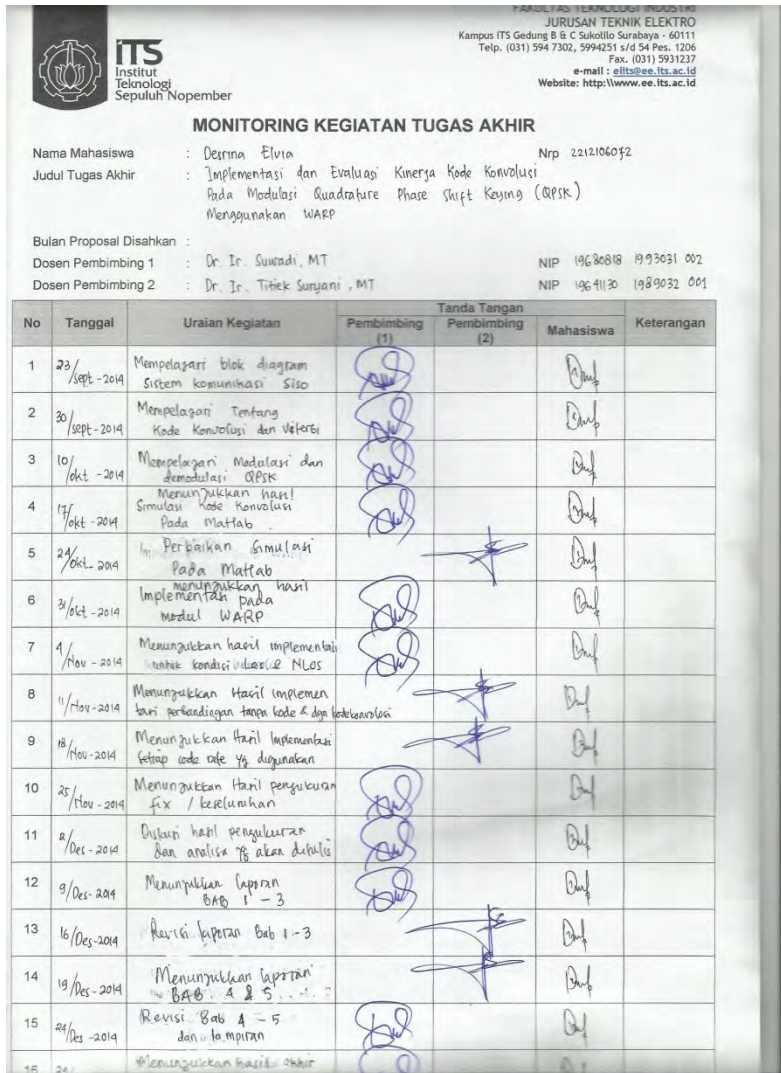 FAKULTAS TEKNOLOGI INDUSTRI
JURUSAN TEKNIK ELEKTRO
Kampus ITS Gedung B & C Sukolilo Surabaya - 60111
Telp. (031) 594 7302, 5994251 s/d 54 Pes. 1206
Fax. (031) 5931237
e-mail : elits@ee.its.ac.id
Website: http:\\www.ee.its.ac.id
ITS
Institut
Teknologi
Sepuluh Nopember
MONITORING KEGIATAN TUGAS AKHIR
Nama Mahasiswa : Desrina Elvia Nrp 2212106072
Judul Tugas Akhir : Implementasi dan Evaluasi Kinerja Kode Konvolusi
Pada Modulasi Quadrature Phase Shift Keying (QPSK)
Menggunakan WARP
Bulan Proposal Disahkan :
Dosen Pembimbing 1 : Dr. Ir. Suwadi, MT NIP 19680818 1993031 002
Dosen Pembimbing 2 : Dr. Ir. Titiek Suryani, MT NIP 19641130 1989032 001
No Tanggal Uraian Kegiatan Tanda Tangan Keterangan
Pembimbing (1) Pembimbing (2) Mahasiswa
1 23/sept-2014 Mempelajari blok diagram
Sistem komunikasi Siso
2 30/sept-2014 Mempelajari Tentang
Kode Konvolusi dan Viterbi
3 10/okt-2014 Mempelajari Modulasi dan
demodulasi QPSK
4 17/okt-2014 Menunjukkan hasil
Simulasi Kode Konvolusi
Pada Matlab.
5 24/okt-2014 Perbaikan Simulasi
Pada Matlab
6 31/okt-2014 menunjukkan hasil
Implementasi pada
modul WARP
7 4/Nov-2014 Menunjukkan hasil implementasi
untuk kondisi NLOS
8 11/Nov-2014 Menunjukkan Hasil implemen
tasi perbandingan tanpa kode & dgn kodekonvolusi
9 18/Nov-2014 Menunjukkan Hasil Implementasi
setiap code rate yg digunakan
10 25/Nov-2014 Menunjukkan Hasil pengukuran
fix / keseluruhan
11 2/Des-2014 Diskusi hasil pengukuran
dan analisa yg akan ditulis
12 9/Des-2014 Menunjukkan laporan
BAB 1 - 3
13 16/Des-2014 Revisi laporan Bab 1-3
14 19/Des-2014 Menunjukkan laporan
BAB 4 & 5
15 24/Des-2014 Revisi Bab 4 - 5
dan lampiran
16 Menunjukkan hasil akhir